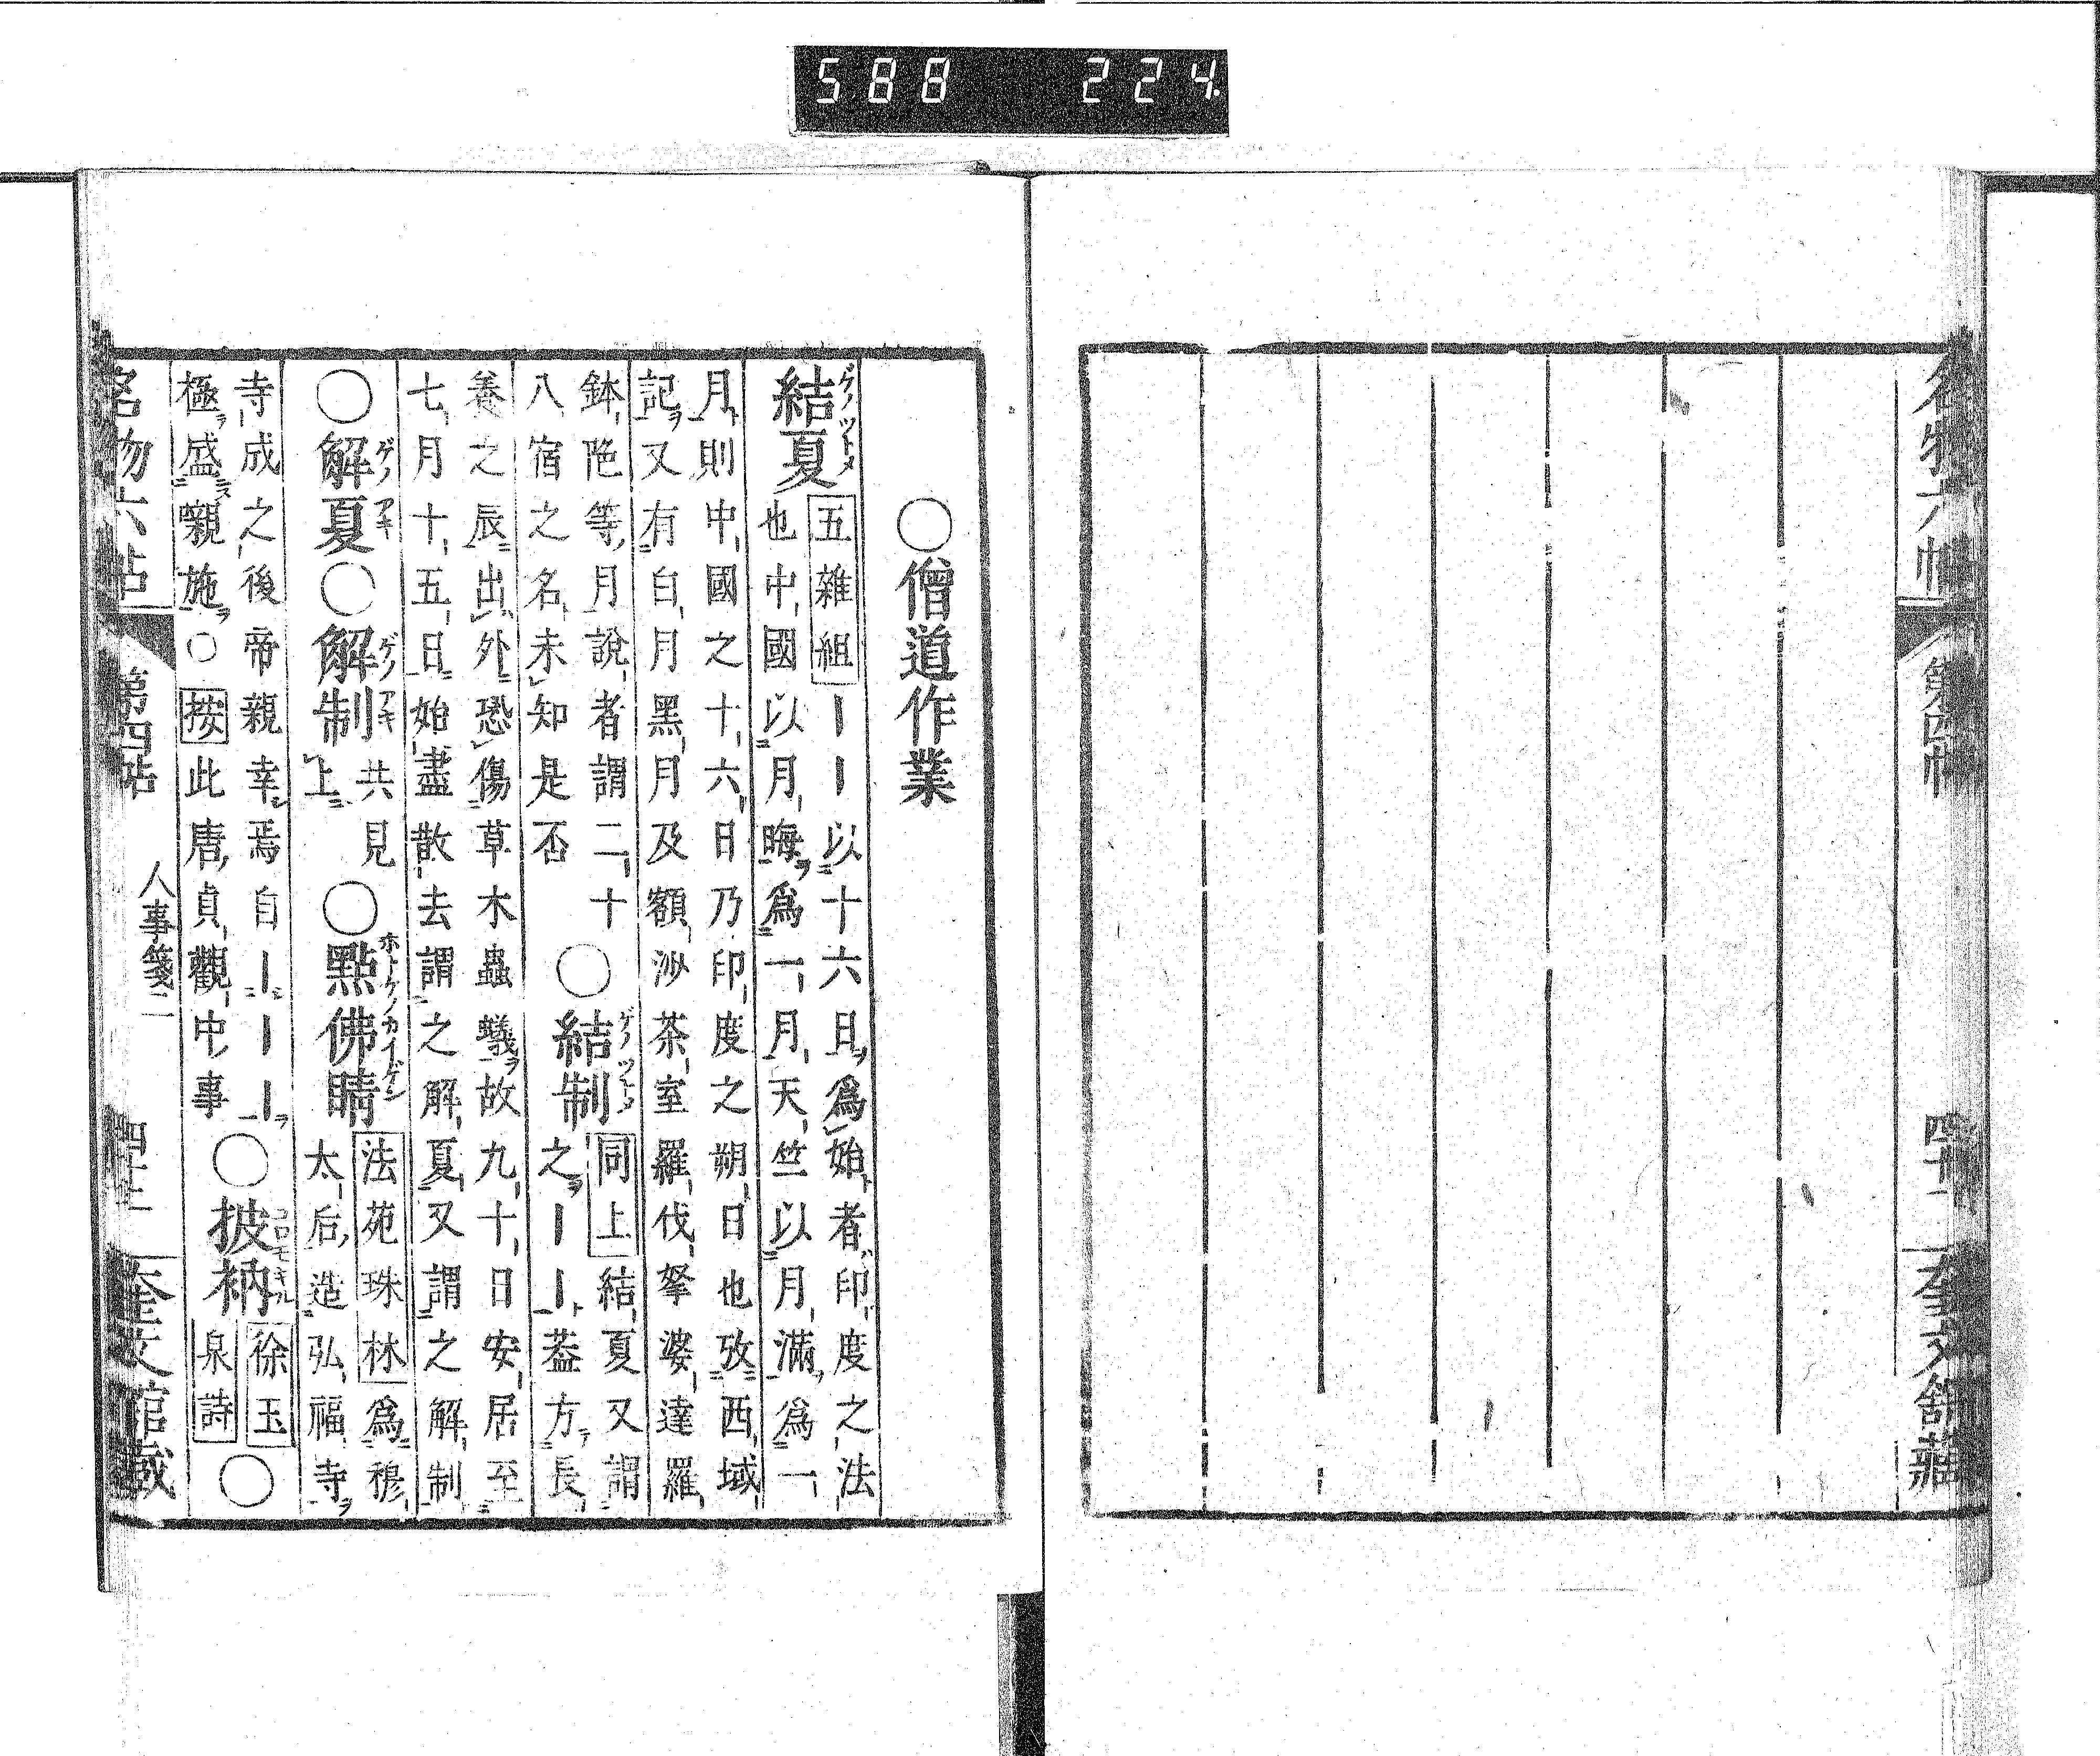 588 224
名物六帖 第四帖 奎文館藏
○僧道作業
結夏 ゲノツトメ
五雜組 ーー以十六日爲始者印度之法
也中國以月晦爲一月天竺以月滿爲一
月則中國之十六日乃印度之朔日也攷西域
記又有白月黑月及額沙茶室羅伐拏婆達羅
鉢陁等月說者謂二十
八宿之名未知是否
○結制 ゲノツトメ
同上 結夏又謂
之ーー葢方長
養之辰出外恐傷草木蟲蟻故九十日安居至
七月十五日始盡散去謂之解夏又謂之解制
○解夏 ゲノアキ ○解制 ゲノアキ
共見
上
○點佛睛 ホトケノカイゲン
法苑珠林 爲穆
太后造弘福寺
寺成之後帝親幸焉自ーーー
極盛嚫施○按此唐貞觀中事
○披衲 コロモキル
徐玉
泉詩
○
名物六帖 第四帖 人事箋二 奎文館藏